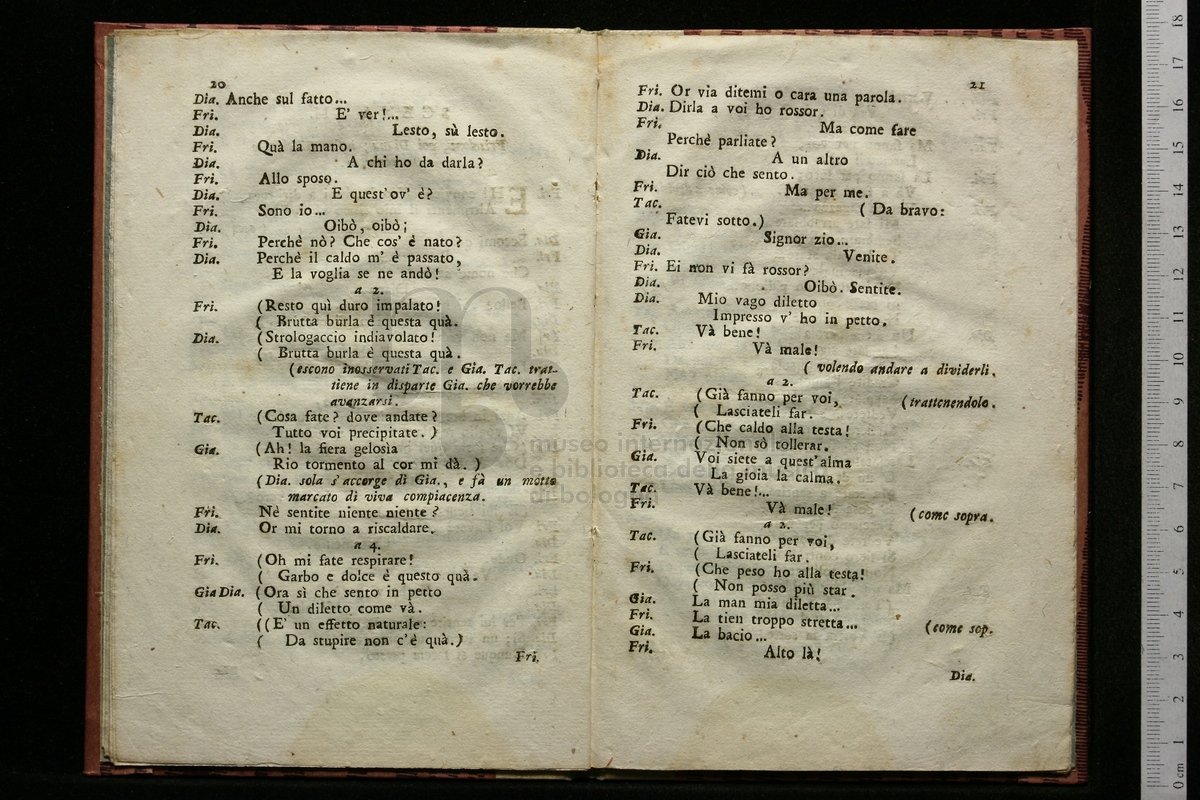 20
Dia. Anche sul fatto...
Fri. E' ver!...
Dia. Lesto, sù lesto.
Fri. Quà la mano.
Dia. A chi ho da darla?
Fri. Allo sposo.
Dia. E quest' ov' è?
Fri. Sono io...
Dia. Oibò, oibò;
Fri. Perchè nò? Che cos' è nato?
Dia. Perchè il caldo m' è passato,
E la voglia se ne andò!
a 2.
Fri. (Resto quì duro impalato!
( Brutta burla è questa quà.
Dia. (Strologaccio indiavolato!
( Brutta burla è questa quà.
(escono inosservati Tac. e Gia. Tac. trat-
tiene in disparte Gia. che vorrebbe
avanzarsi.
Tac. (Cosa fate? dove andate?
Tutto voi precipitate.)
Gia. (Ah! la fiera gelosìa
Rio tormento al cor mi dà.)
(Dia. sola s'accorge di Gia., e fà un motto
marcato di viva compiacenza.
Fri. Nè sentite niente niente?
Dia. Or mi torno a riscaldare.
a 4.
Fri. (Oh mi fate respirare!
( Garbo e dolce è questo quà.
Gia Dia. (Ora sì che sento in petto
( Un diletto come và.
Tac. ((E' un effetto naturale:
( Da stupire non c'è quà.)
Fri.
21
Fri. Or via ditemi o cara una parola.
Dia. Dirla a voi ho rossor.
Fri. Ma come fare
Perchè parliate?
Dia. A un altro
Dir ciò che sento.
Fri. Ma per me.
Tac. ( Da bravo:
Fatevi sotto.)
Gia. Signor zio...
Dia. Venite.
Fri. Ei non vi fà rossor?
Dia. Oibò. Sentite.
Dia. Mio vago diletto
Impresso v' ho in petto.
Tac. Và bene!
Fri. Và male!
( volendo andare a dividerli.
a 2.
Tac. (Già fanno per voi, (trattenendolo.
( Lasciateli far.
Fri. (Che caldo alla testa!
( Non sò tollerar.
Gia. Voi siete a quest' alma
La gioia la calma.
Tac. Và bene!...
Fri. Và male! (come sopra.
a 2.
Tac. (Già fanno per voi,
( Lasciateli far.
Fri. (Che peso ho alla testa!
( Non posso più star.
Gia. La man mia diletta...
Fri. La tien troppo stretta... (come sop.
Gia. La bacio...
Fri. Alto là!
Dia.
museo internazionale
e biblioteca della
di bologna
0 cm 1 2 3 4 5 6 7 8 9 10 11 12 13 14 15 16 17 18